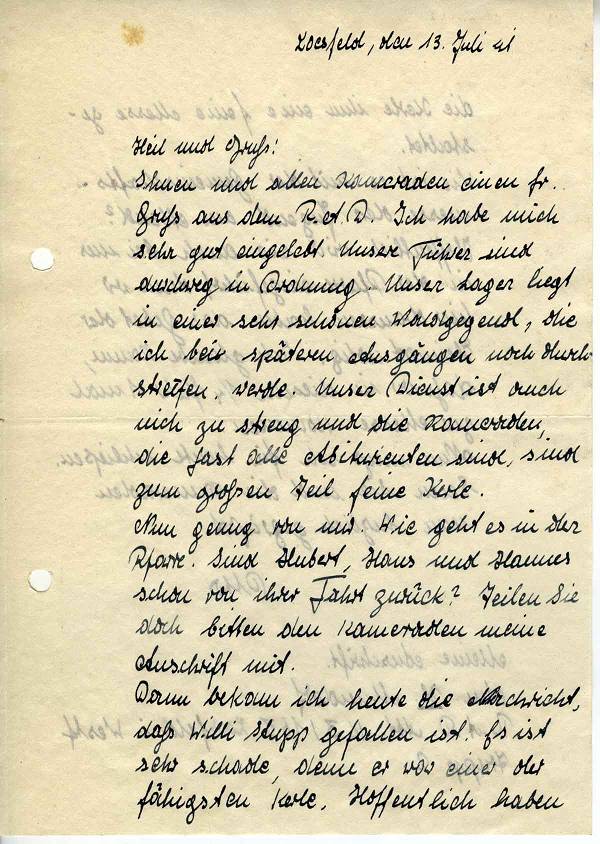 Coesfeld, den 13. Juli 41
Heil und Gruß!
Ihnen und allen Kameraden einen fr.
Gruß aus dem R.A.D. Ich habe mich
sehr gut eingelebt. Unser Führer sind
durchweg in Ordnung. Unser Lager liegt
in einer sehr schönen Waldgegend, die
ich bei späteren Ausgängen noch durch-
streifen, werde. Unser Dienst ist auch
nich zu streng und die Kameraden,
die fast alle Abiturienten sind, sind
zum großen Teil feine Kerle.
Nun genug von mir. Wie geht es in der
Pfarre. Sind Hubert, Hans und Hannes
schon von ihrer Fahrt zurück? Teilen Sie
doch bitten den Kameraden meine
Anschrift mit.
Dann bekam ich heute die Nachricht,
daß Willi Stupp gefallen ist. Es ist
sehr schade, denn er war einer der
fähigsten Kerle. Hoffentlich haben